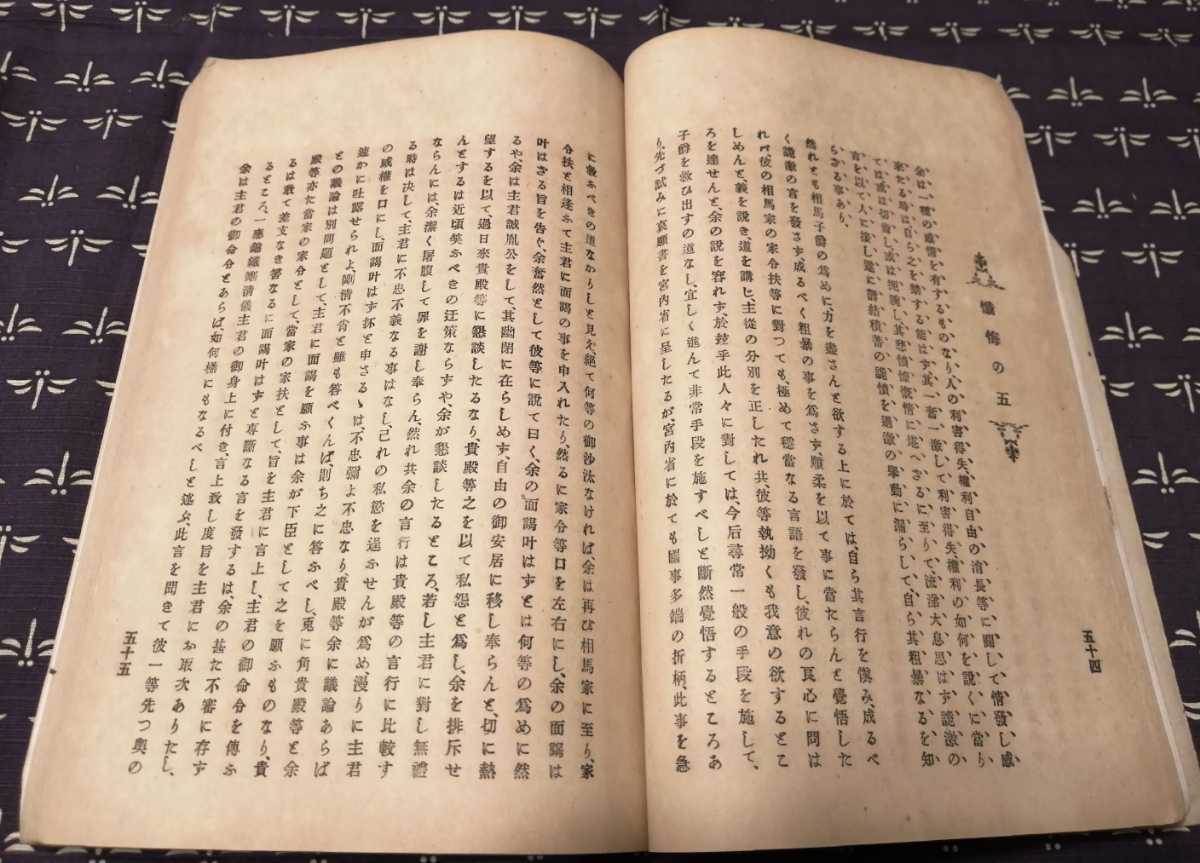 五十四
懺悔の五
余は、一種の感情を有するものなり、人の利害得失、權利自由の消長等に關して、情發し感
來たる時は、自ら之を禁する能はす、其一奮一激して、利害得失、權利の如何を說くに當り
ては、或は切齒し、或は扼腕し、其悲憤慷慨情に堪へさるに至りて、流涕大息思はす過激の
言を以て、人に接し、遂に
を過激の擧動に漏らして、自ら其粗暴なるを知
らさる事あり、
然れとも相馬子爵の爲めに力を盡さんと欲する上に於ては、自ら其言行を愼み、成るべ
く過激の言を發さす、成るべく粗暴の事を爲さす、順柔を以て事に當たらんと覺悟した
れバ彼の相馬家の家令扶等に對つても、極めて穩當なる言語を發し、彼れの良心に問は
しめんと、義を說き道を講じ、主從の分別を正したれ共彼等執拗くも我意の欲するとこ
ろを達せんと、余の說を容れす、於玆乎此人々に對しては、今后尋常一般の手段を施して、
子爵を救ひ出すの道なし、宜しく進んで非常手段を施すべしと斷然覺悟するところあ
り、先づ試みに哀願書を宮内省に呈したるが、宮内省に於ても國事多端の折柄、此事を急
に救ふべきの道なかりしと見え、絕て何等の御沙汰なければ、余は再び相馬家に至り、家
令扶と相逢ふて主君に面謁の事を申入れたり、然るに家令等口を左右にし、余の面謁は
叶はざる旨を告ぐ、余奮然として彼等に說て曰く、余の面謁叶はず、とは何等の爲めに然
るや、余は主君誠胤公をして其幽閉に在らしめず、自由の御安居に移し奉らんと、切に熱
望するを以て、過日來貴殿等に懇談したるなり、貴殿等之を以て私怨と爲し、余を排斥せ
んとするは近頃笑ふべきの迂策ならずや、余が懇談したるところ、若し主君に對し無禮
ならんには、余潔く屠腹して罪を謝し奉らん、然れ共余の言行は貴殿等の言行に比較す
る時は決して、主君に不忠不義なる事はなし、己れの私慾を逞ふせんが爲め、漫りに主君
の威權を口にし、面謁叶はす抔と申さるゝは、不忠彌よ不忠なり、貴殿等余に議論あらば
速かに吐露せられよ、剛淸不肖と雖も答べくんば、則ち之に答ふべし、兎に角貴殿等と余
との議論は別問題として、主君に面謁を願ふ事は余が下臣として之を願ふものなり、貴
殿等亦た當家の家令として、當家の家扶として、旨を主君に言上し、主君の御命令を傳ふ
るは敢て差支なき筈なるに面謁叶はすと專斷なる言を發するは、余の甚た不審に存す
るところ、一應錦織剛淸儀主君の御身上に付き、言上致し度旨を主君にお取次ありたし、
余は主君の御命令とあらば如何樣にもなるべしと述ぶ、此言を聞きて彼一等先つ奥の
五十五